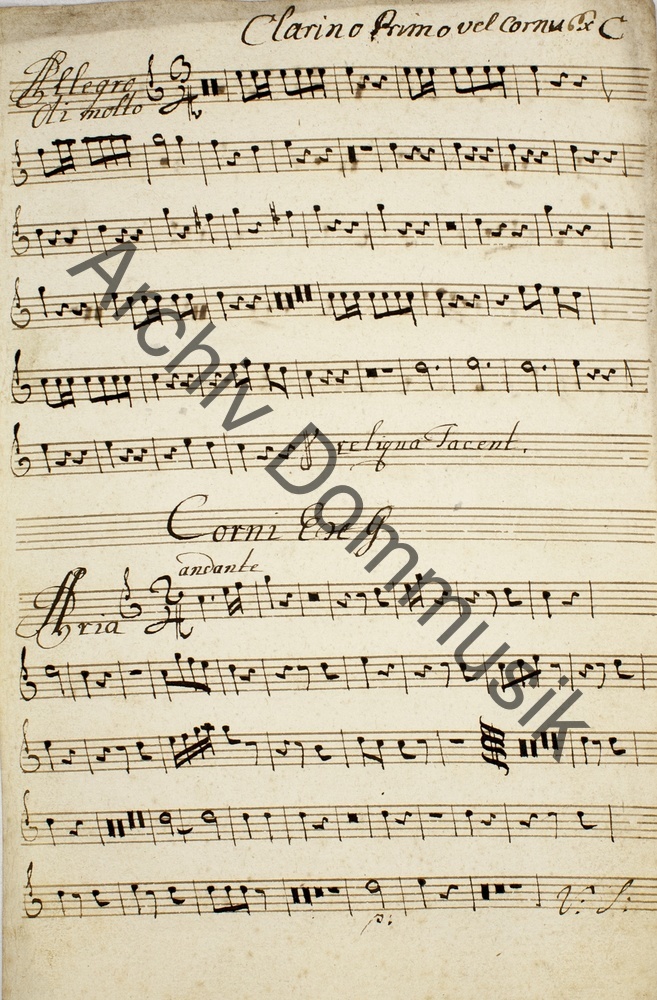 Clarino Primo vel Cornu Ex C
Allegro
di molto
3
4
reliqua Tacent.
Corni Ex G
andante
Aria
2
4
p:
V: S:
Archiv Dommusik